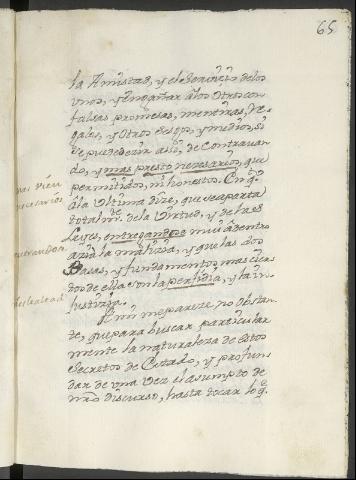 65
la Amistad, y el Serviçio de los
unos, y engañar a los otros con
falsas promesas, mentiras, Re-
galos, y otros
de
do, y mas presto neçesarios, que
permitidos, ni honestos. En q.to
a la Ultima dire, que se aparta
totalm.te de la Virtud, y de las
Leyes, entregandose mui adentro
azia la maliçia, y que las dos
Basas, y fundamentos mas çier-
tos de ella son la perfidia, y la in-
justiçia.
A mi me pareze no obstan-
te, que para buscar particular
mente la naturaleza de estos
Secretos de Estado, y profun-
dar de una vez el asumpto de
nro discurso, hasta tocar lo q.e
mas bien
neçesarios
entrandose
deslealtad